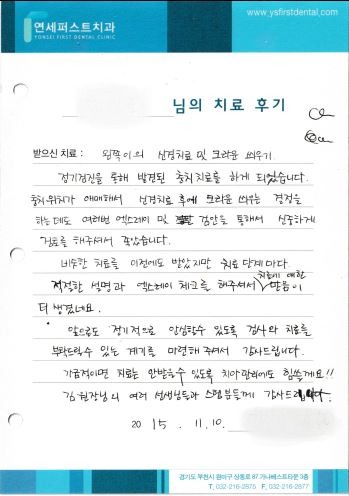 연세퍼스트치과
YONSEI FIRST DENTAL CLINIC
www.ysfirstdental.com
님의 치료 후기
받으신 치료 : 왼쪽이의 신경치료 및 크라운 씌우기.
정기검진을 통해 발견된 충치치료를 하게 되었습니다.
충치위치가 애매해서 신경치료 후에 크라운 씌우는 결정을
하는데도 여러번 엑스레이 및 검안을 통해서 신중하게
검토를 해주셔서 좋았습니다.
비슷한 치료를 이전에도 받았지만 치료 단계마다
치료에 대한
적절한 설명과 엑스레이 체크를 해주셔서 믿음이
더 생겼네요.
앞으로도 정기적으로 안심할수 있도록 검사와 치료를
부탁드릴수 있는 계기를 마련해 주셔서 감사드립니다.
가급적이면 치료는 안받을수 있도록 치아관리에도 힘쓸게요!!
김원장님 외 여러 선생님들과 스텝분들께 감사드립니다.
2015. 11. 10.
경기도 부천시 원미구 상동로 87 가나베스트타운 3층
T. 032-216-2875 F. 032-216-2877